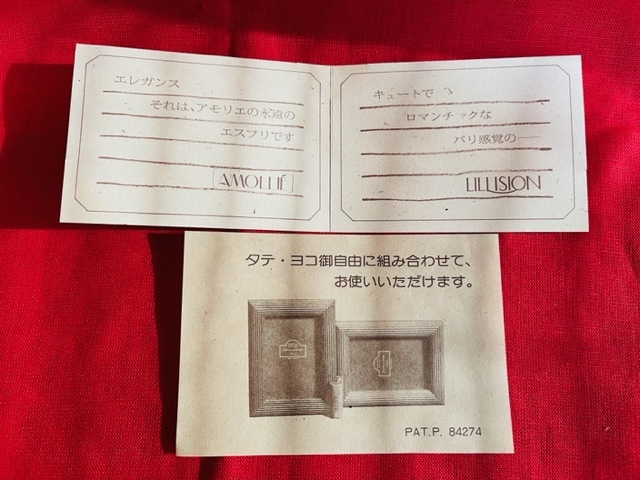 エレガンス
それは、アモリエの永遠の
エスプリです
AMOLLIÉ
キュートで
ロマンチックな
パリ感覚の——
LILLUSION
タテ・ヨコ御自由に組み合わせて、
お使いいただけます。
PAT.P. 84274